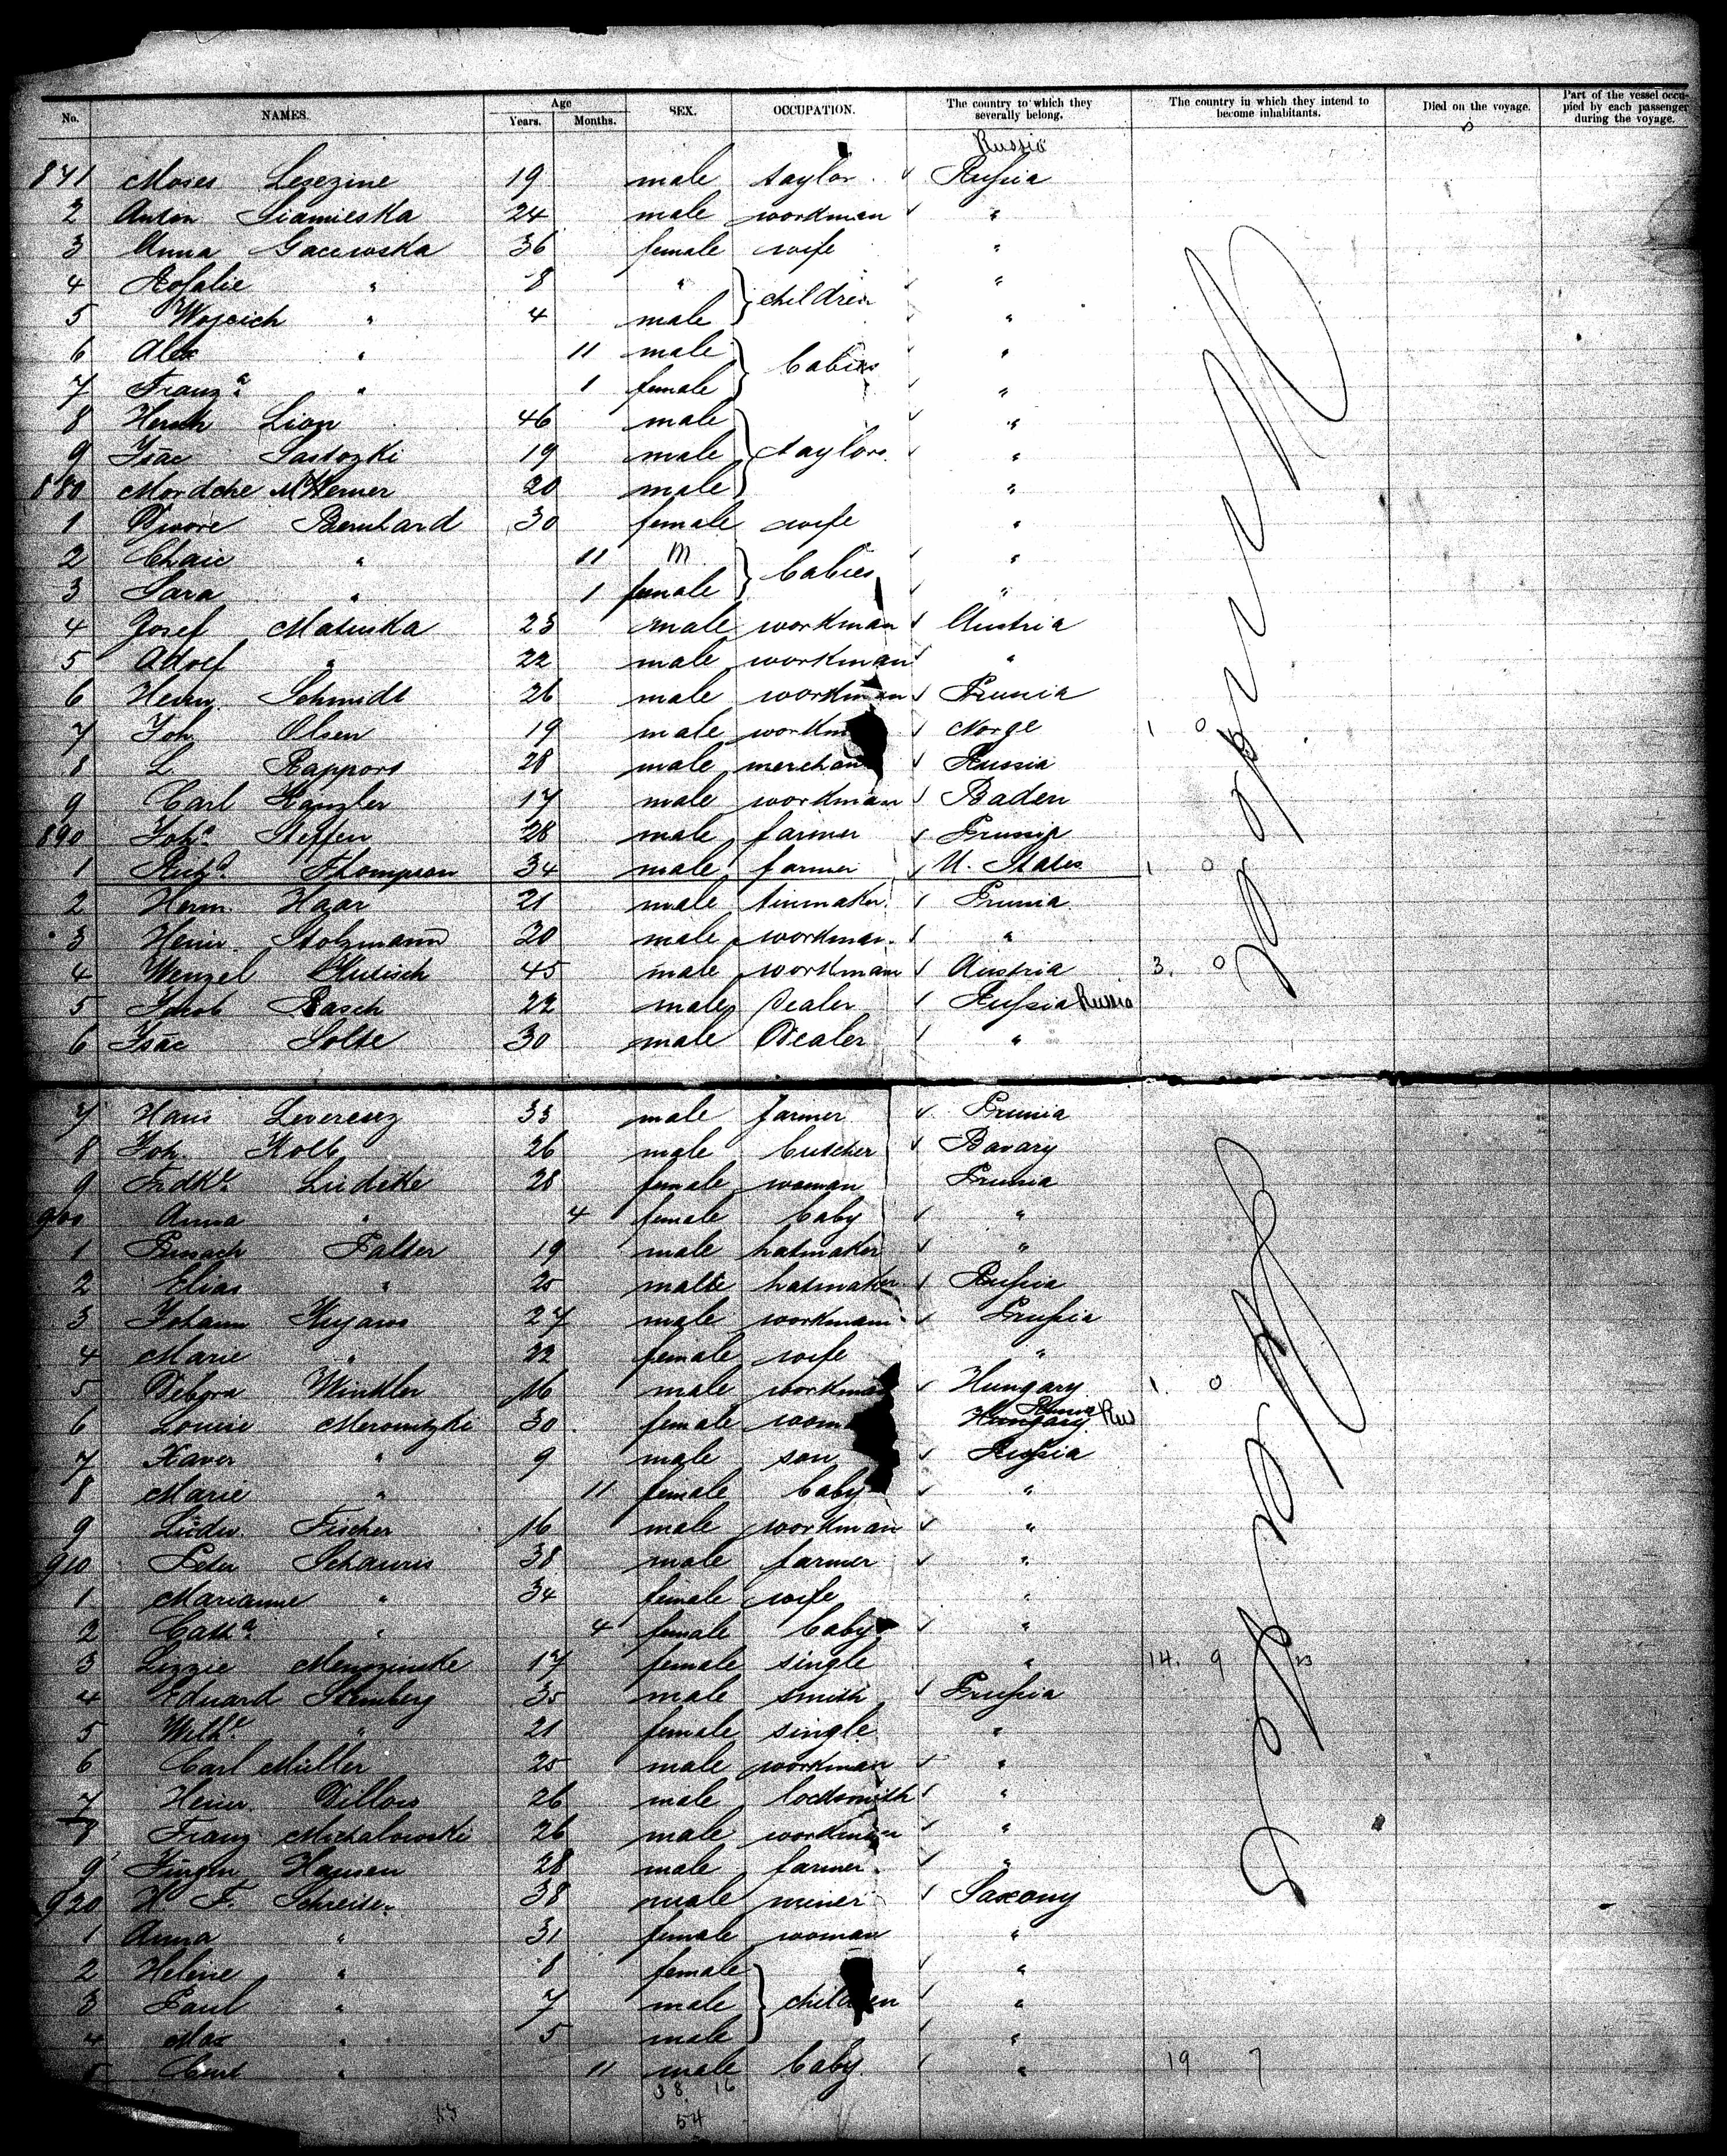 No. NAMES. Age Years. Months. SEX. OCCUPATION. The country to which they severally belong. The country in which they intend to become inhabitants. Died on the voyage. Part of the vessel occupied by each passenger during the voyage.
Russia
871 Moses Lesezine 19 male taylor Russia
2 Anton 24 male workman "
3 Anna Gacewska 36 female wife "
4 Rosalie " 8 " children "
5 Wojcich " 4 male "
6 Alex " 11 male babies "
7 Franz.a " 1 female "
8 Hersch Lion 46 male taylors "
9 Isac 19 male "
880 Mordche Werner 20 male "
1 Dwore Bernhard 30 female wife "
2 Chaie " 11 M babies "
3 Sara " 1 female "
4 Josef Matuska 23 male workman Austria
5 Adolf " 22 male workman "
6 Herm. Schmidt 26 male workman Prussia
7 Joh. Olsen 19 male workm Norge 1 0
8 L Rapport 28 male merchan Russia
9 Carl Kanzler 17 male workman Baden
890 Joh.a Steffen 28 male farmer Prussia
1 Thompson 34 male farmer U. States 1 0
2 Herm. Haar 21 male tinmaker Prussia
3 Heinr. Stolzmann 20 male workman "
4 Wenzel 45 male workman Austria 3. 0
5 Jacob Rasch 22 male Dealer Russia Russia
6 Isac Solte 30 male Dealer "
7 Hans Leverenz 33 male farmer Prussia
8 Joh. Kolb 26 male butcher Bavary
9 Fredke. Lüdeke 28 female woman Prussia
900 Anna " 4 female baby "
1 Palter 19 male hatmaker "
2 Elias " 25 male hatmaker Russia
3 Johann Kujawa 27 male workman Prussia
4 Marie " 22 female wife "
5 Debora Winkler 16 male workman Hungary 1. 0
6 Louise Merowitzki 30 female wom Hungary Russia Rus
7 Xaver " 9 male son Russia
8 Marie " 11 female baby "
9 Ludw. Fischer 16 male workman "
910 Peter Schauris 38 male farmer "
1 Marianne " 34 female wife "
2 Cath.a " 4 female baby "
3 Lizzie 17 female single " 14. 9
4 Eduard Steinberg 35 male smith Prussia
5 Wilh.e " 21 female single "
6 Carl Müller 25 male workman "
7 Heinr. Dillow 26 male locksmith "
8 Franz Michalowski 26 male workman "
9 Jürgen Hansen 28 male farmer "
920 H. F. Schreiter 38 male miner Saxony
1 Anna " 31 female woman "
2 Helene " 8 female children "
3 Paul " 7 male "
4 Max " 5 male "
5 Curt " 11 male baby " 19 7
38 16
53 54